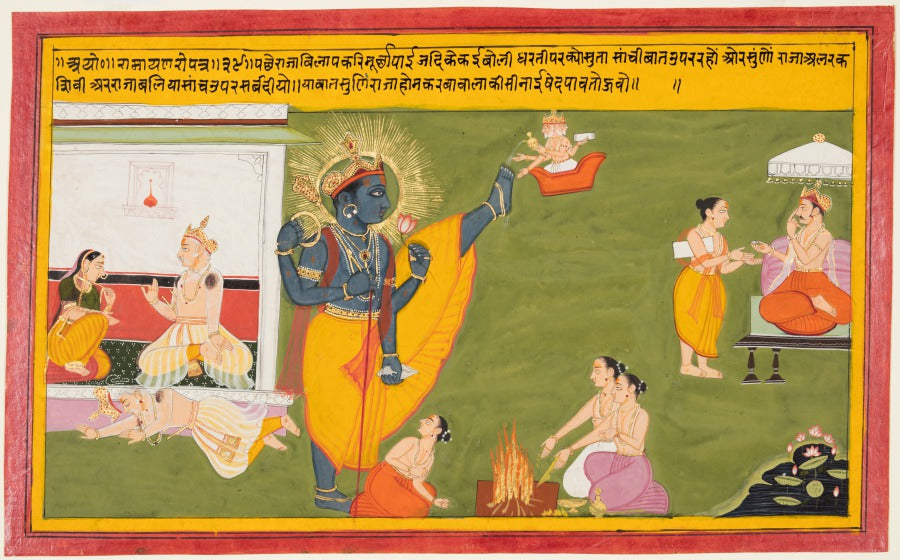 ॥ अयो०॥ रामायण रो पत्र॥ ३५॥ पछे राजा विलाप करि मूर्छा पाई जदि केकई बोली धरती पर क्यो सुता सांची बात उपर रहों ओर सुणों राजा अलरक
शिबी अर राजा बलि या सांच उपर सर्ब दीयो॥ या बात सुणि राजा होम कर बा वाला की सी नाई षेद पावतो ऊवो॥ ॥